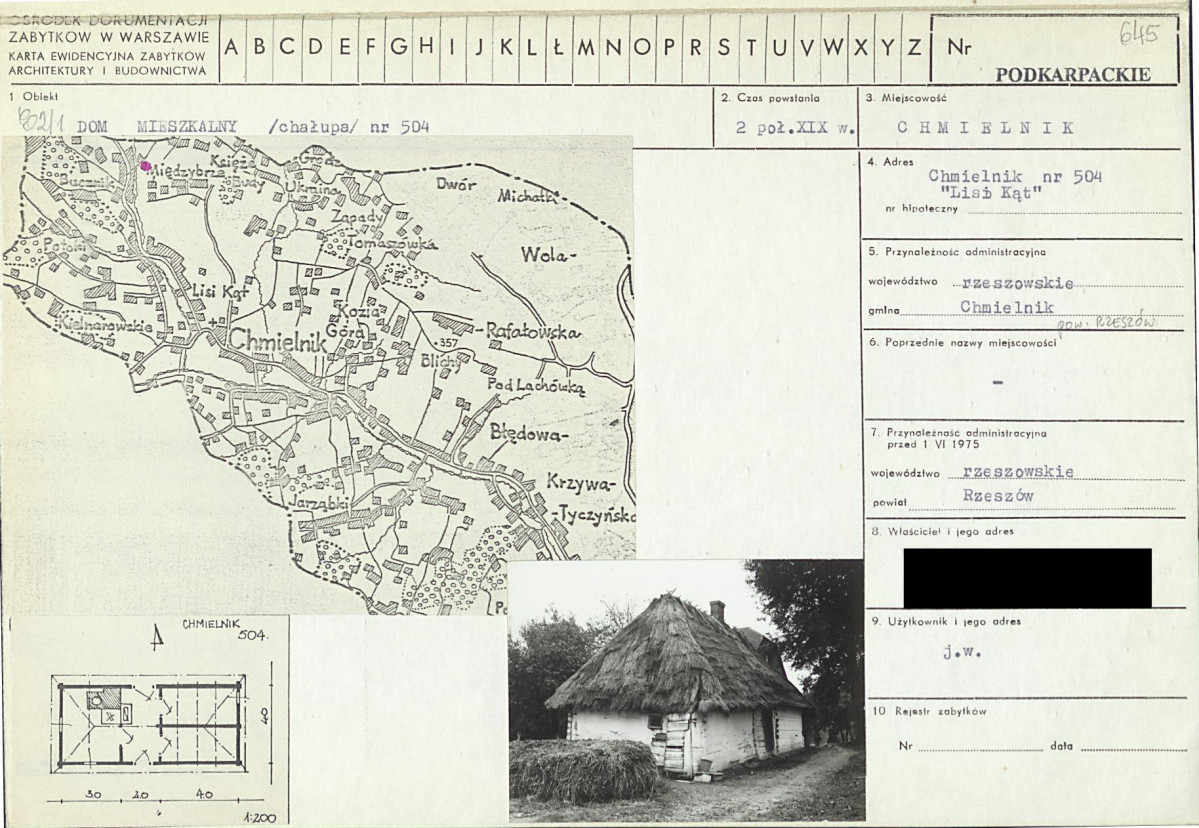 OŚRODEK DOKUMENTACJI
ZABYTKÓW W WARSZAWIE
KARTA EWIDENCYJNA ZABYTKÓW
ARCHITEKTURY I BUDOWNICTWA
A B C D E F G H I J K L Ł M N O P R S T U V W X Y Z
Nr
645
PODKARPACKIE
1 Obiekt
802/1 DOM MIESZKALNY /chałupa/ nr 504
2. Czas powstania
2 poł.XIX w.
3. Miejscowość
CHMIELNIK
4. Adres
Chmielnik nr 504
"Lisi Kąt"
nr hipoteczny
5. Przynależność administracyjna
województwo rzeszowskie
gmina Chmielnik
pow. RZESZÓW
6. Poprzednie nazwy miejscowości
-
7. Przynależność administracyjna
przed 1 VI 1975
województwo rzeszowskie
powiat Rzeszów
8. Właściciel i jego adres
9. Użytkownik i jego adres
j.w.
10 Rejestr zabytków
Nr data
Księże
Grodz
Międzybrze
Bucznik
Budy
Ukraina
Dwór
Michałki
Zapady
Potoki
Tomaszówka
Wola-
Lisi Kąt
Kozia
Góra
Kielnarowskie
Chmielnik
-Rafałowska
357
Blichy
Pod Lachówką
Błędowa-
Krzywa-
Jarząbki
-Tyczyńska
CHMIELNIK
504.
4.0
3.0 2.0 4.0
1:200